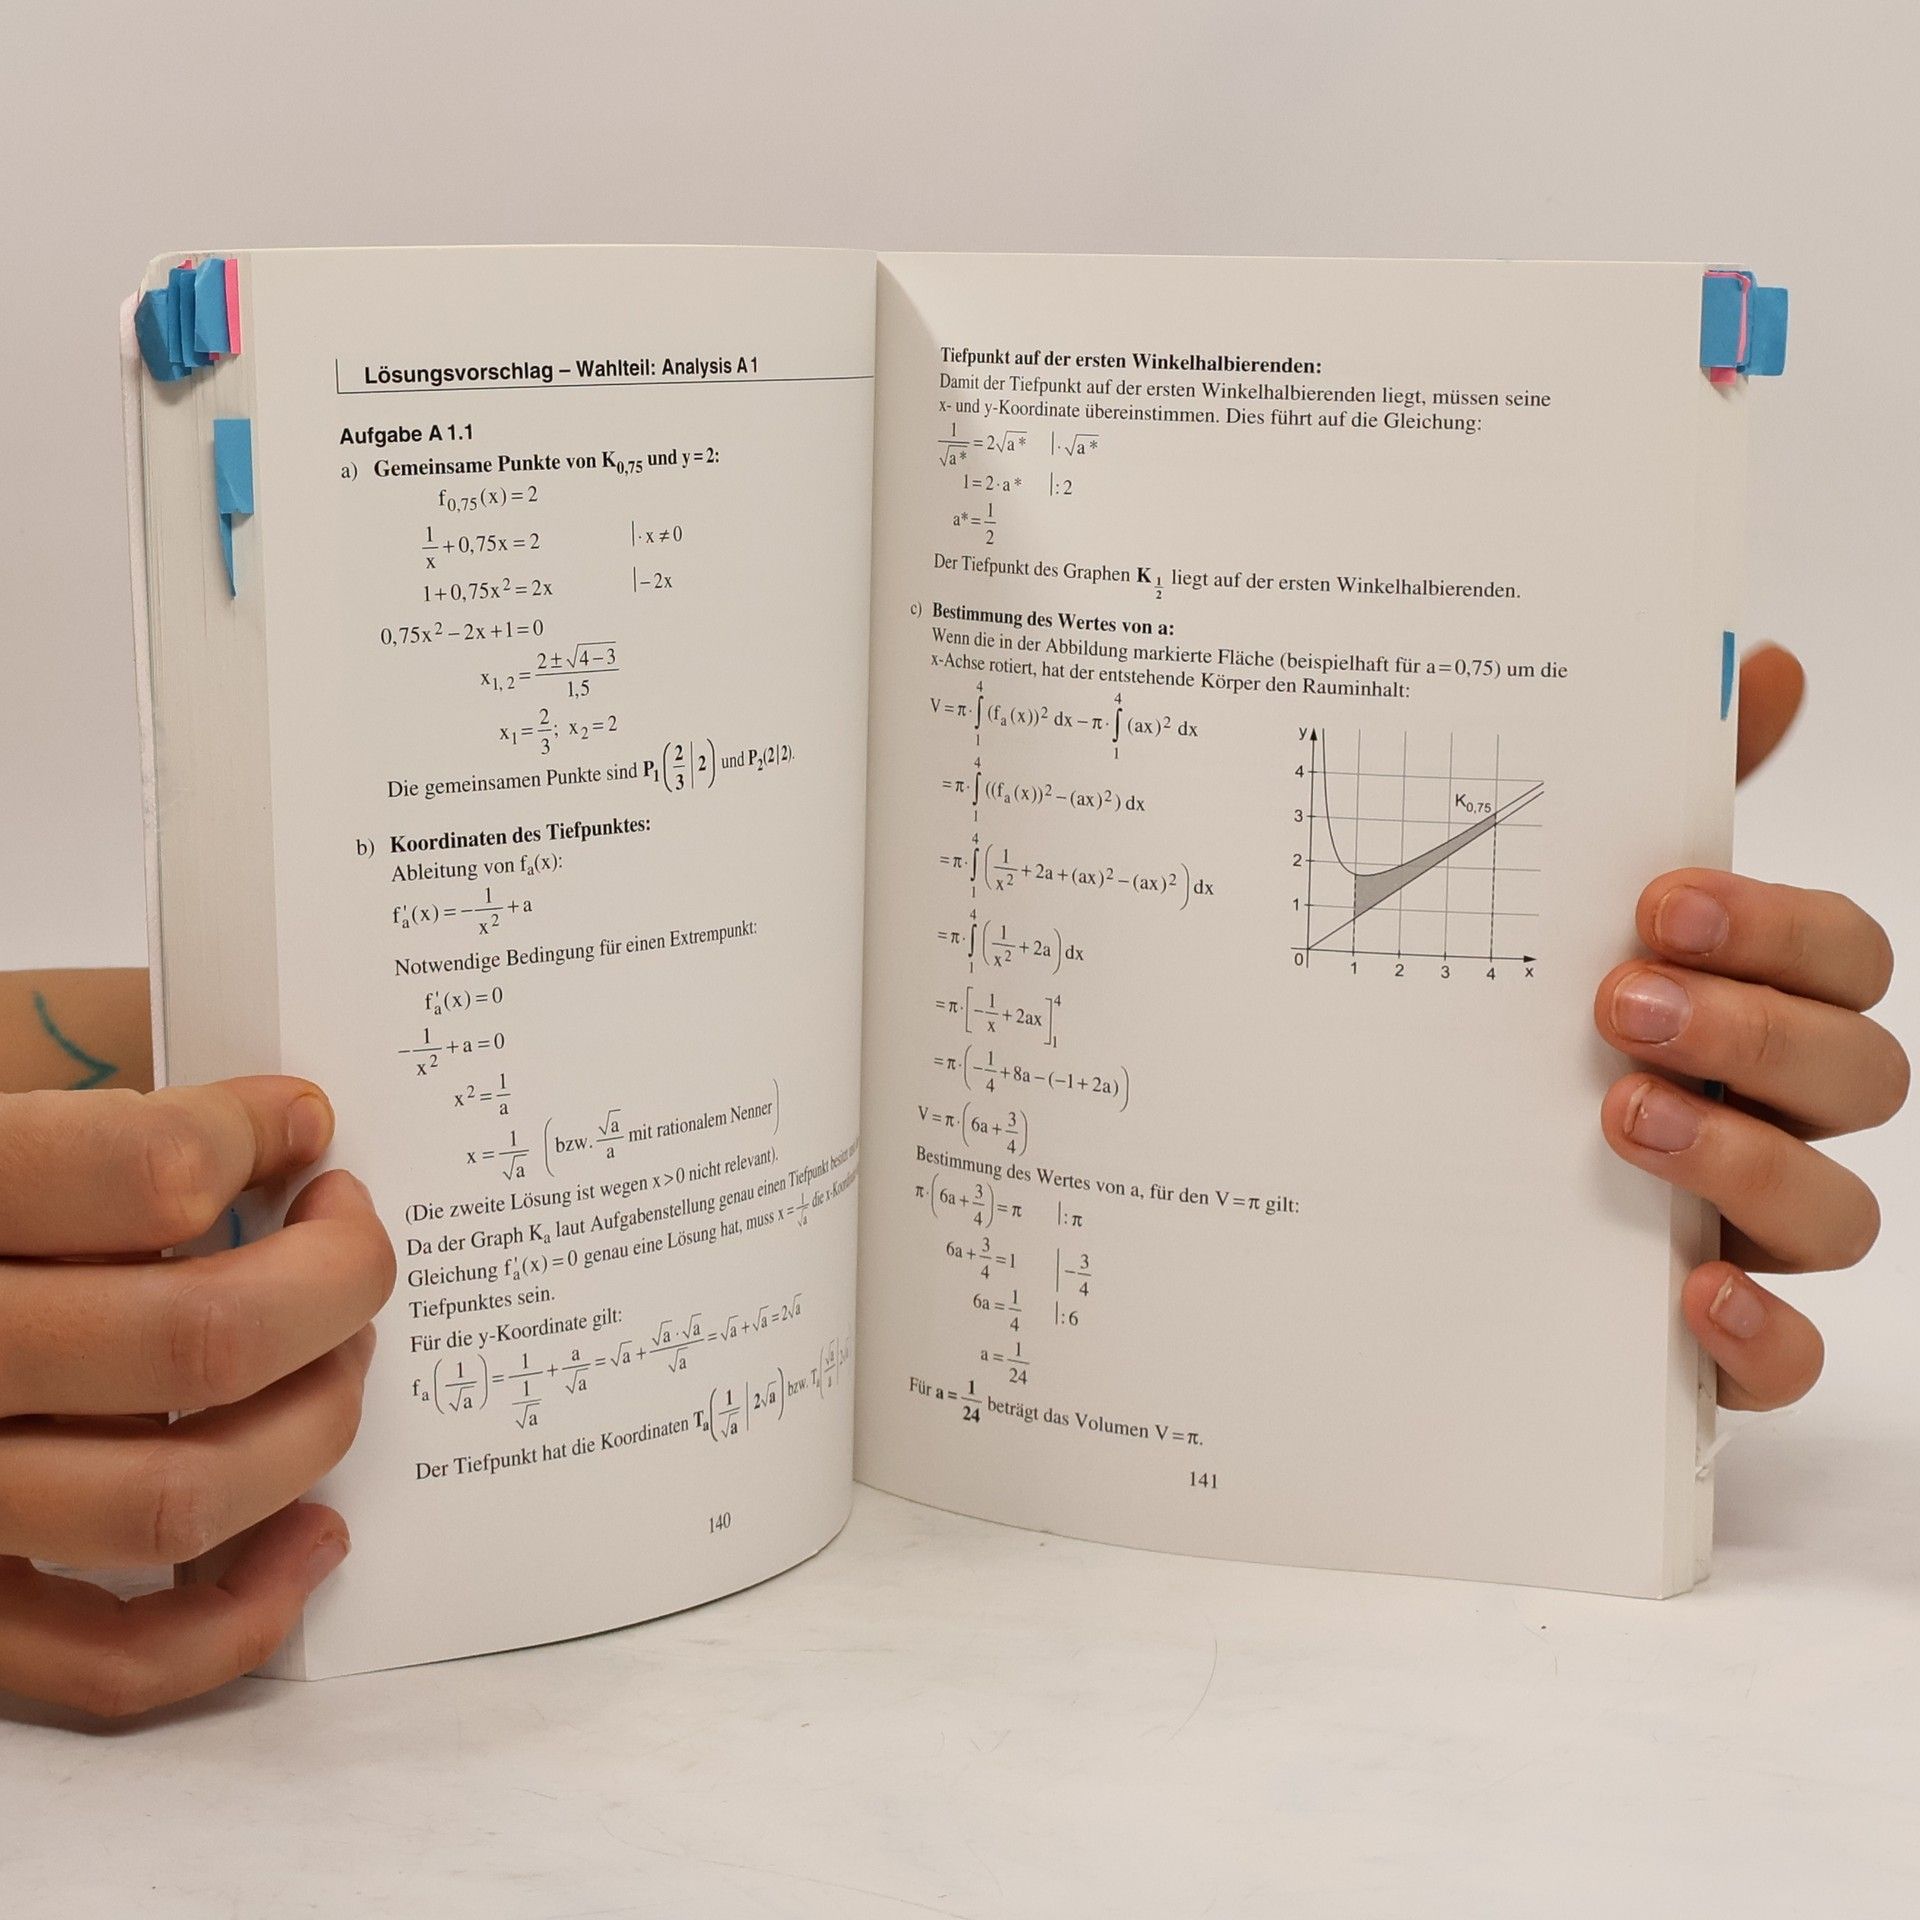 Lösungsvorschlag – Wahlteil: Analysis A 1
Aufgabe A 1.1
a) Gemeinsame Punkte von K₀,₇₅ und y = 2:
f₀,₇₅(x) = 2
1/x + 0,75x = 2 | · x ≠ 0
1 + 0,75x² = 2x | – 2x
0,75x² – 2x + 1 = 0
x₁, ₂ = (2 ± √(4 – 3))/1,5
x₁ = 2/3; x₂ = 2
Die gemeinsamen Punkte sind P₁(2/3 | 2) und P₂(2|2).
b) Koordinaten des Tiefpunktes:
Ableitung von fₐ(x):
fₐ'(x) = –1/x² + a
Notwendige Bedingung für einen Extrempunkt:
fₐ'(x) = 0
–1/x² + a = 0
x² = 1/a
x = 1/√a (bzw. √a/a mit rationalem Nenner)
(Die zweite Lösung ist wegen x > 0 nicht relevant).
Da der Graph Kₐ laut Aufgabenstellung genau einen Tiefpunkt besitzt
Gleichung fₐ'(x) = 0 genau eine Lösung hat, muss x = 1/√a die
Tiefpunktes sein.
Für die y-Koordinate gilt:
fₐ(1/√a) = 1/(1/√a) + a/√a = √a + (√a · √a)/√a = √a + √a = 2√a
Der Tiefpunkt hat die Koordinaten Tₐ(1/√a | 2√a) bzw. Tₐ(√a/a | 2√a
140
Tiefpunkt auf der ersten Winkelhalbierenden:
Damit der Tiefpunkt auf der ersten Winkelhalbierenden liegt, müssen seine
x- und y-Koordinate übereinstimmen. Dies führt auf die Gleichung:
1/√a* = 2√a* | · √a*
1 = 2 · a* | : 2
a* = 1/2
Der Tiefpunkt des Graphen K_1/2 liegt auf der ersten Winkelhalbierenden.
c) Bestimmung des Wertes von a:
Wenn die in der Abbildung markierte Fläche (beispielhaft für a = 0,75) um die
x-Achse rotiert, hat der entstehende Körper den Rauminhalt:
V = π · ∫₁⁴ (fₐ(x))² dx – π · ∫₁⁴ (ax)² dx
= π · ∫₁⁴ ((fₐ(x))² – (ax)²) dx
= π · ∫₁⁴ (1/x² + 2a + (ax)² – (ax)²) dx
= π · ∫₁⁴ (1/x² + 2a) dx
= π · [–1/x + 2ax]₁⁴
= π · (–1/4 + 8a – (–1 + 2a))
V = π · (6a + 3/4)
Bestimmung des Wertes von a, für den V = π gilt:
π · (6a + 3/4) = π | : π
6a + 3/4 = 1 | – 3/4
6a = 1/4 | : 6
a = 1/24
Für a = 1/24 beträgt das Volumen V = π.
y
4
3
2
1
0
1 2 3 4 x
K₀,₇₅
141